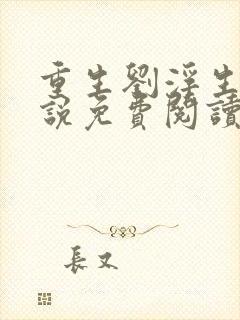 重生劉淫生
說免費閱讀
長又